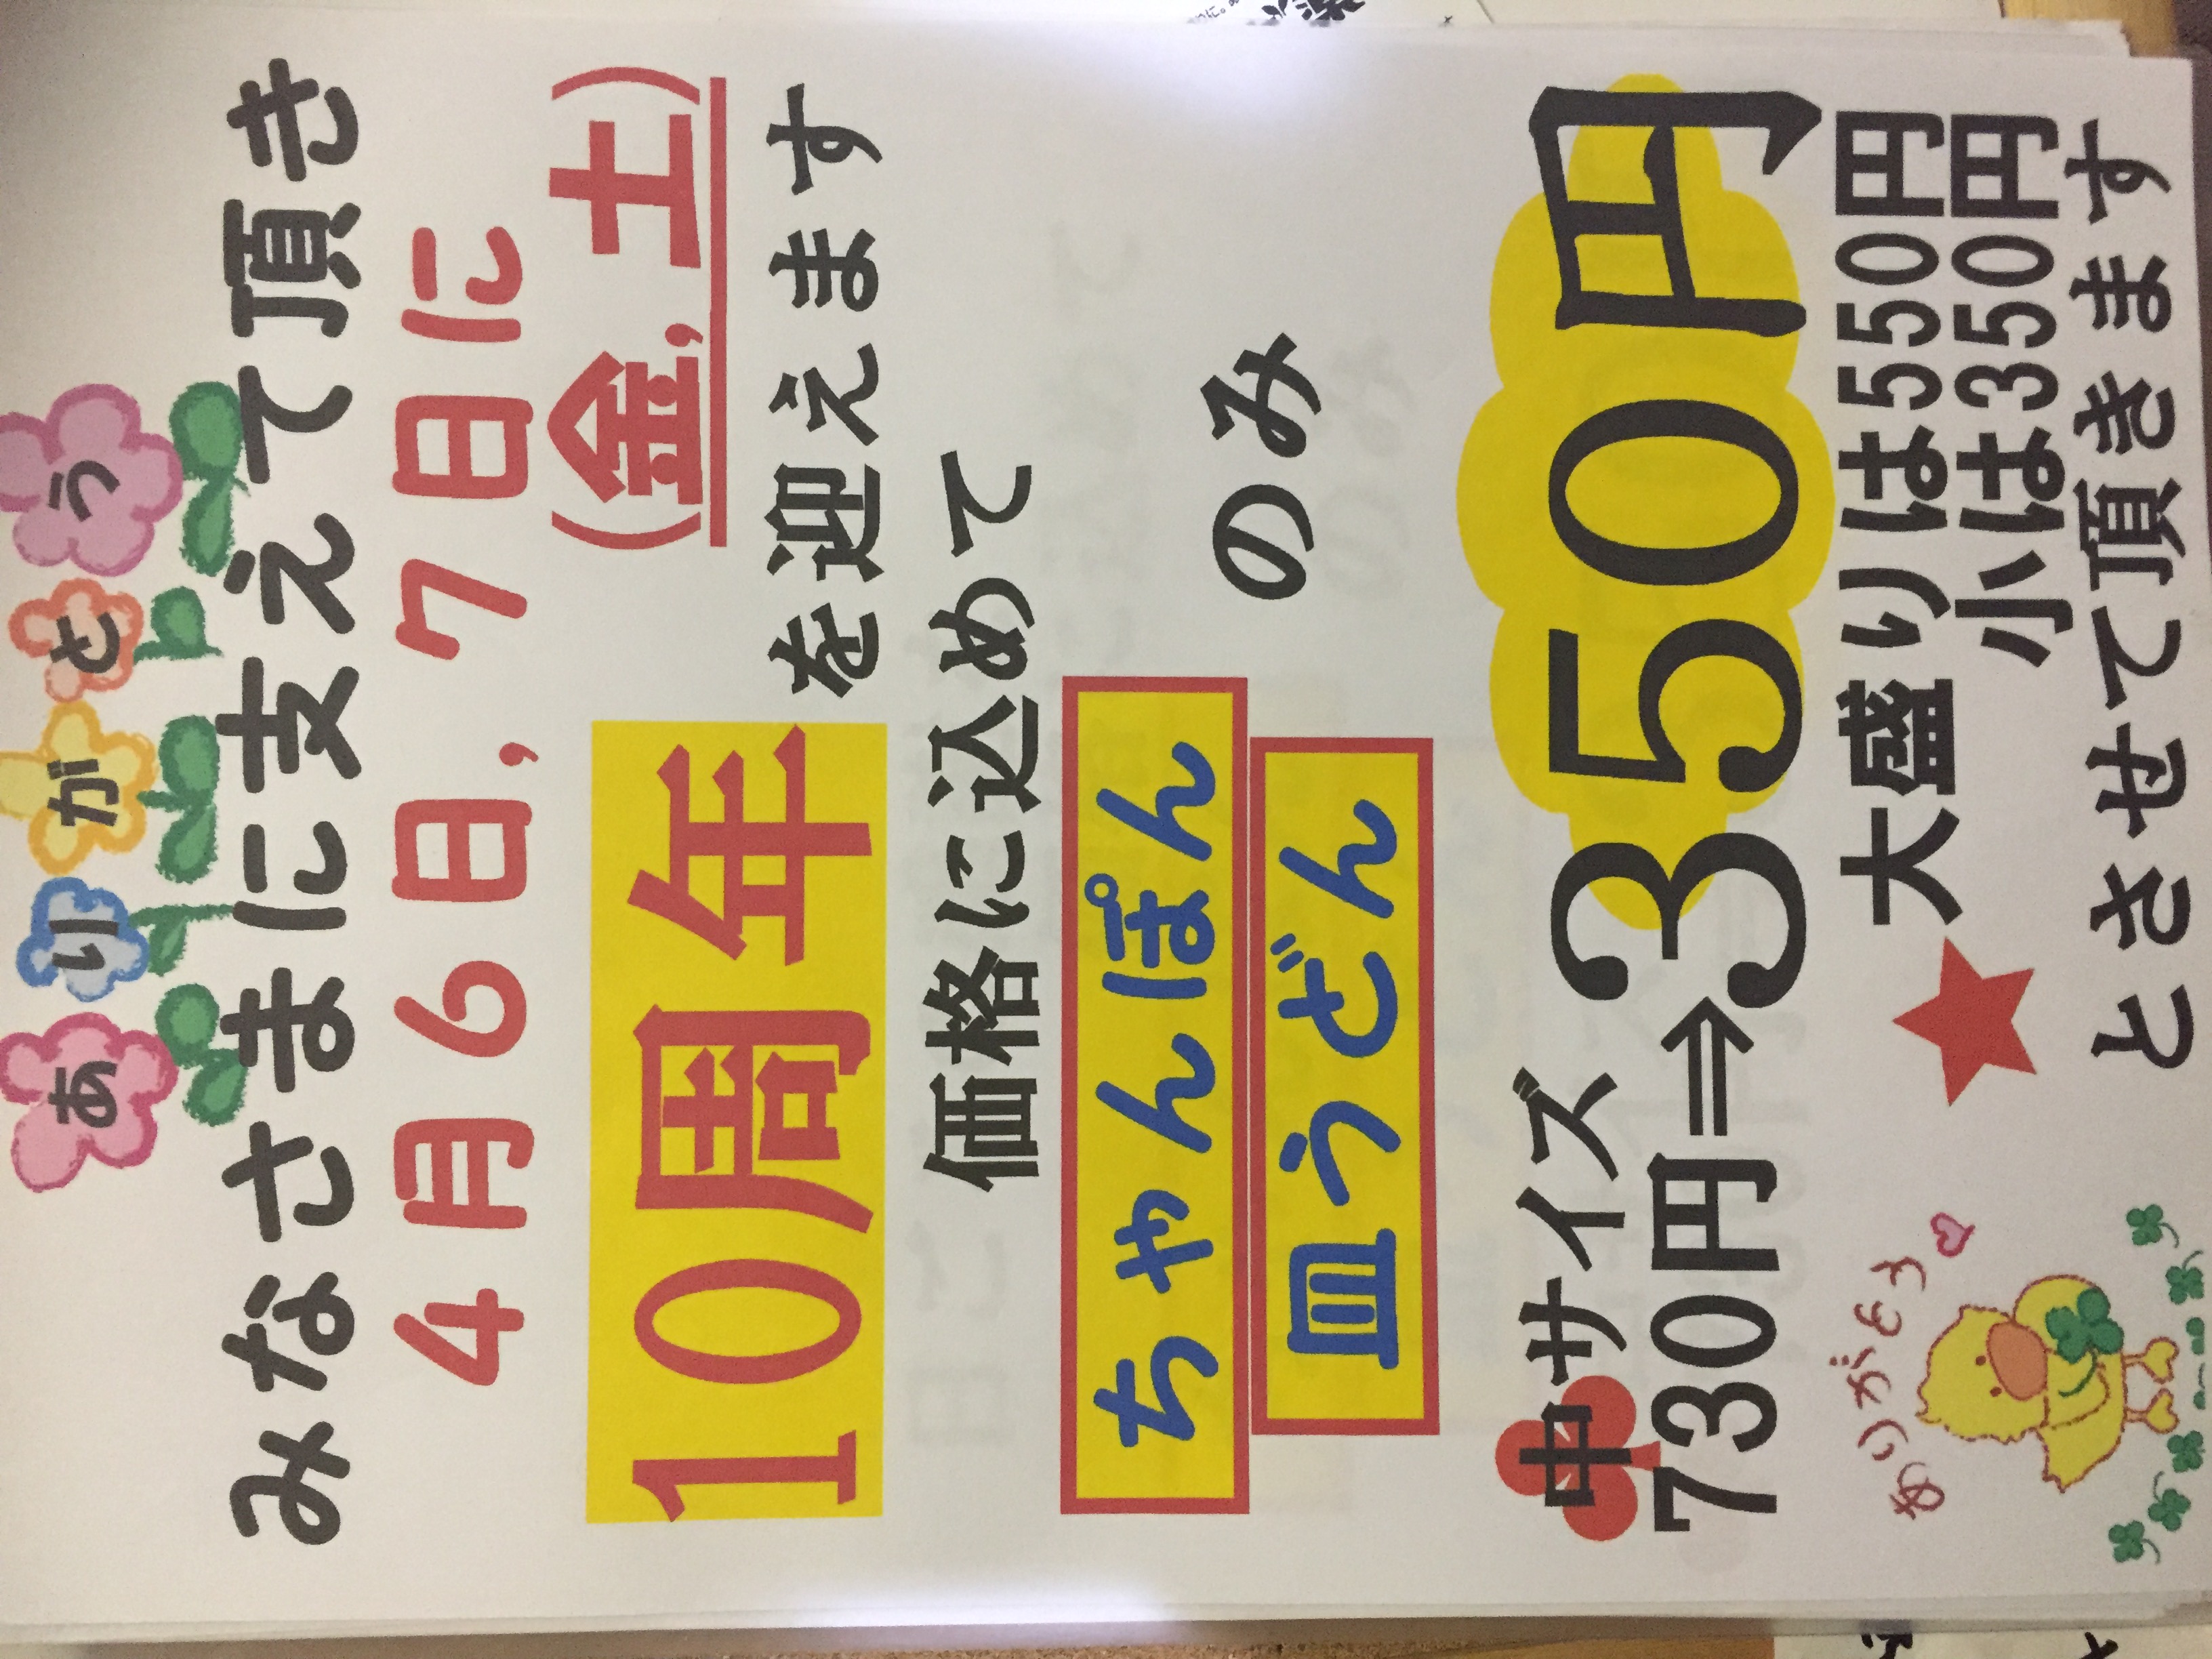 ありがとう
みなさまに支えて頂き
4月6日,7日に
(金,土)
10周年を迎えます
価格に込めて
ちゃんぽん
皿うどん
のみ
中サイズ
730円⇒350円
大盛りは550円
小は350円
とさせて頂きます
ありがとう